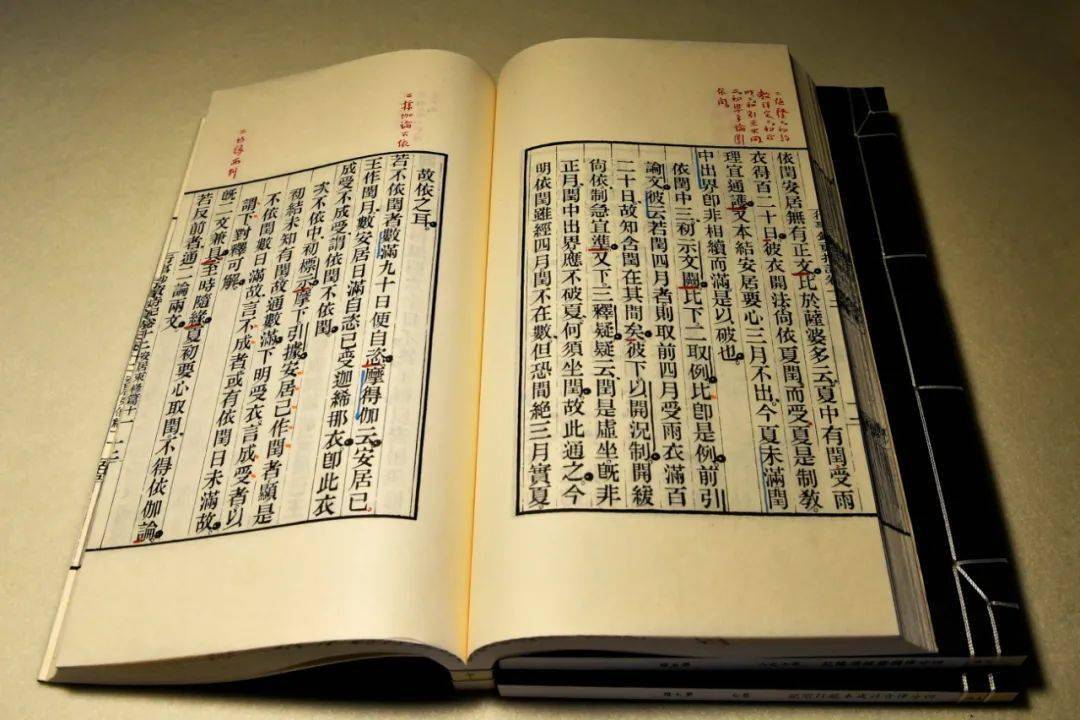 依閏安居無有正文比於薩婆多云夏中有閏受雨
衣得百二十日彼衣開法尙依夏閏而受夏是制教
理宜通護又本結安居要心三月不出今夏未滿閏
中出界卽非相續而滿是以破也
依閏中三初示文闕比下二取例比卽是例前引
論文彼云若閏四月者則取前四月受雨衣滿百
二十日故知含閏在其間矣彼下以開況制開緩
尙依制急宜準又下三釋疑疑云閏是虛坐旣非
正月閏中出界應不破夏何須坐閏故此通之今
明依閏雖經四月閏不在數但恐間絕三月實夏
故依之耳
若不依閏者數滿九十日便自恣摩得伽云安居已
王作閏月數安居日滿自恣已受迦絺那衣卽此衣
成受不成受謂依閏不依閏
次不依中初標示摩下引據安居已作閏者顯是
初結未知有閏故通數滿下明受衣言成受者以
不依閏數日滿故言不成者或有依閏日未滿故
謂下對釋可解
旣二文兼具至時隨緣夏初要心取閏不得依伽論
若反前者通二論兩文